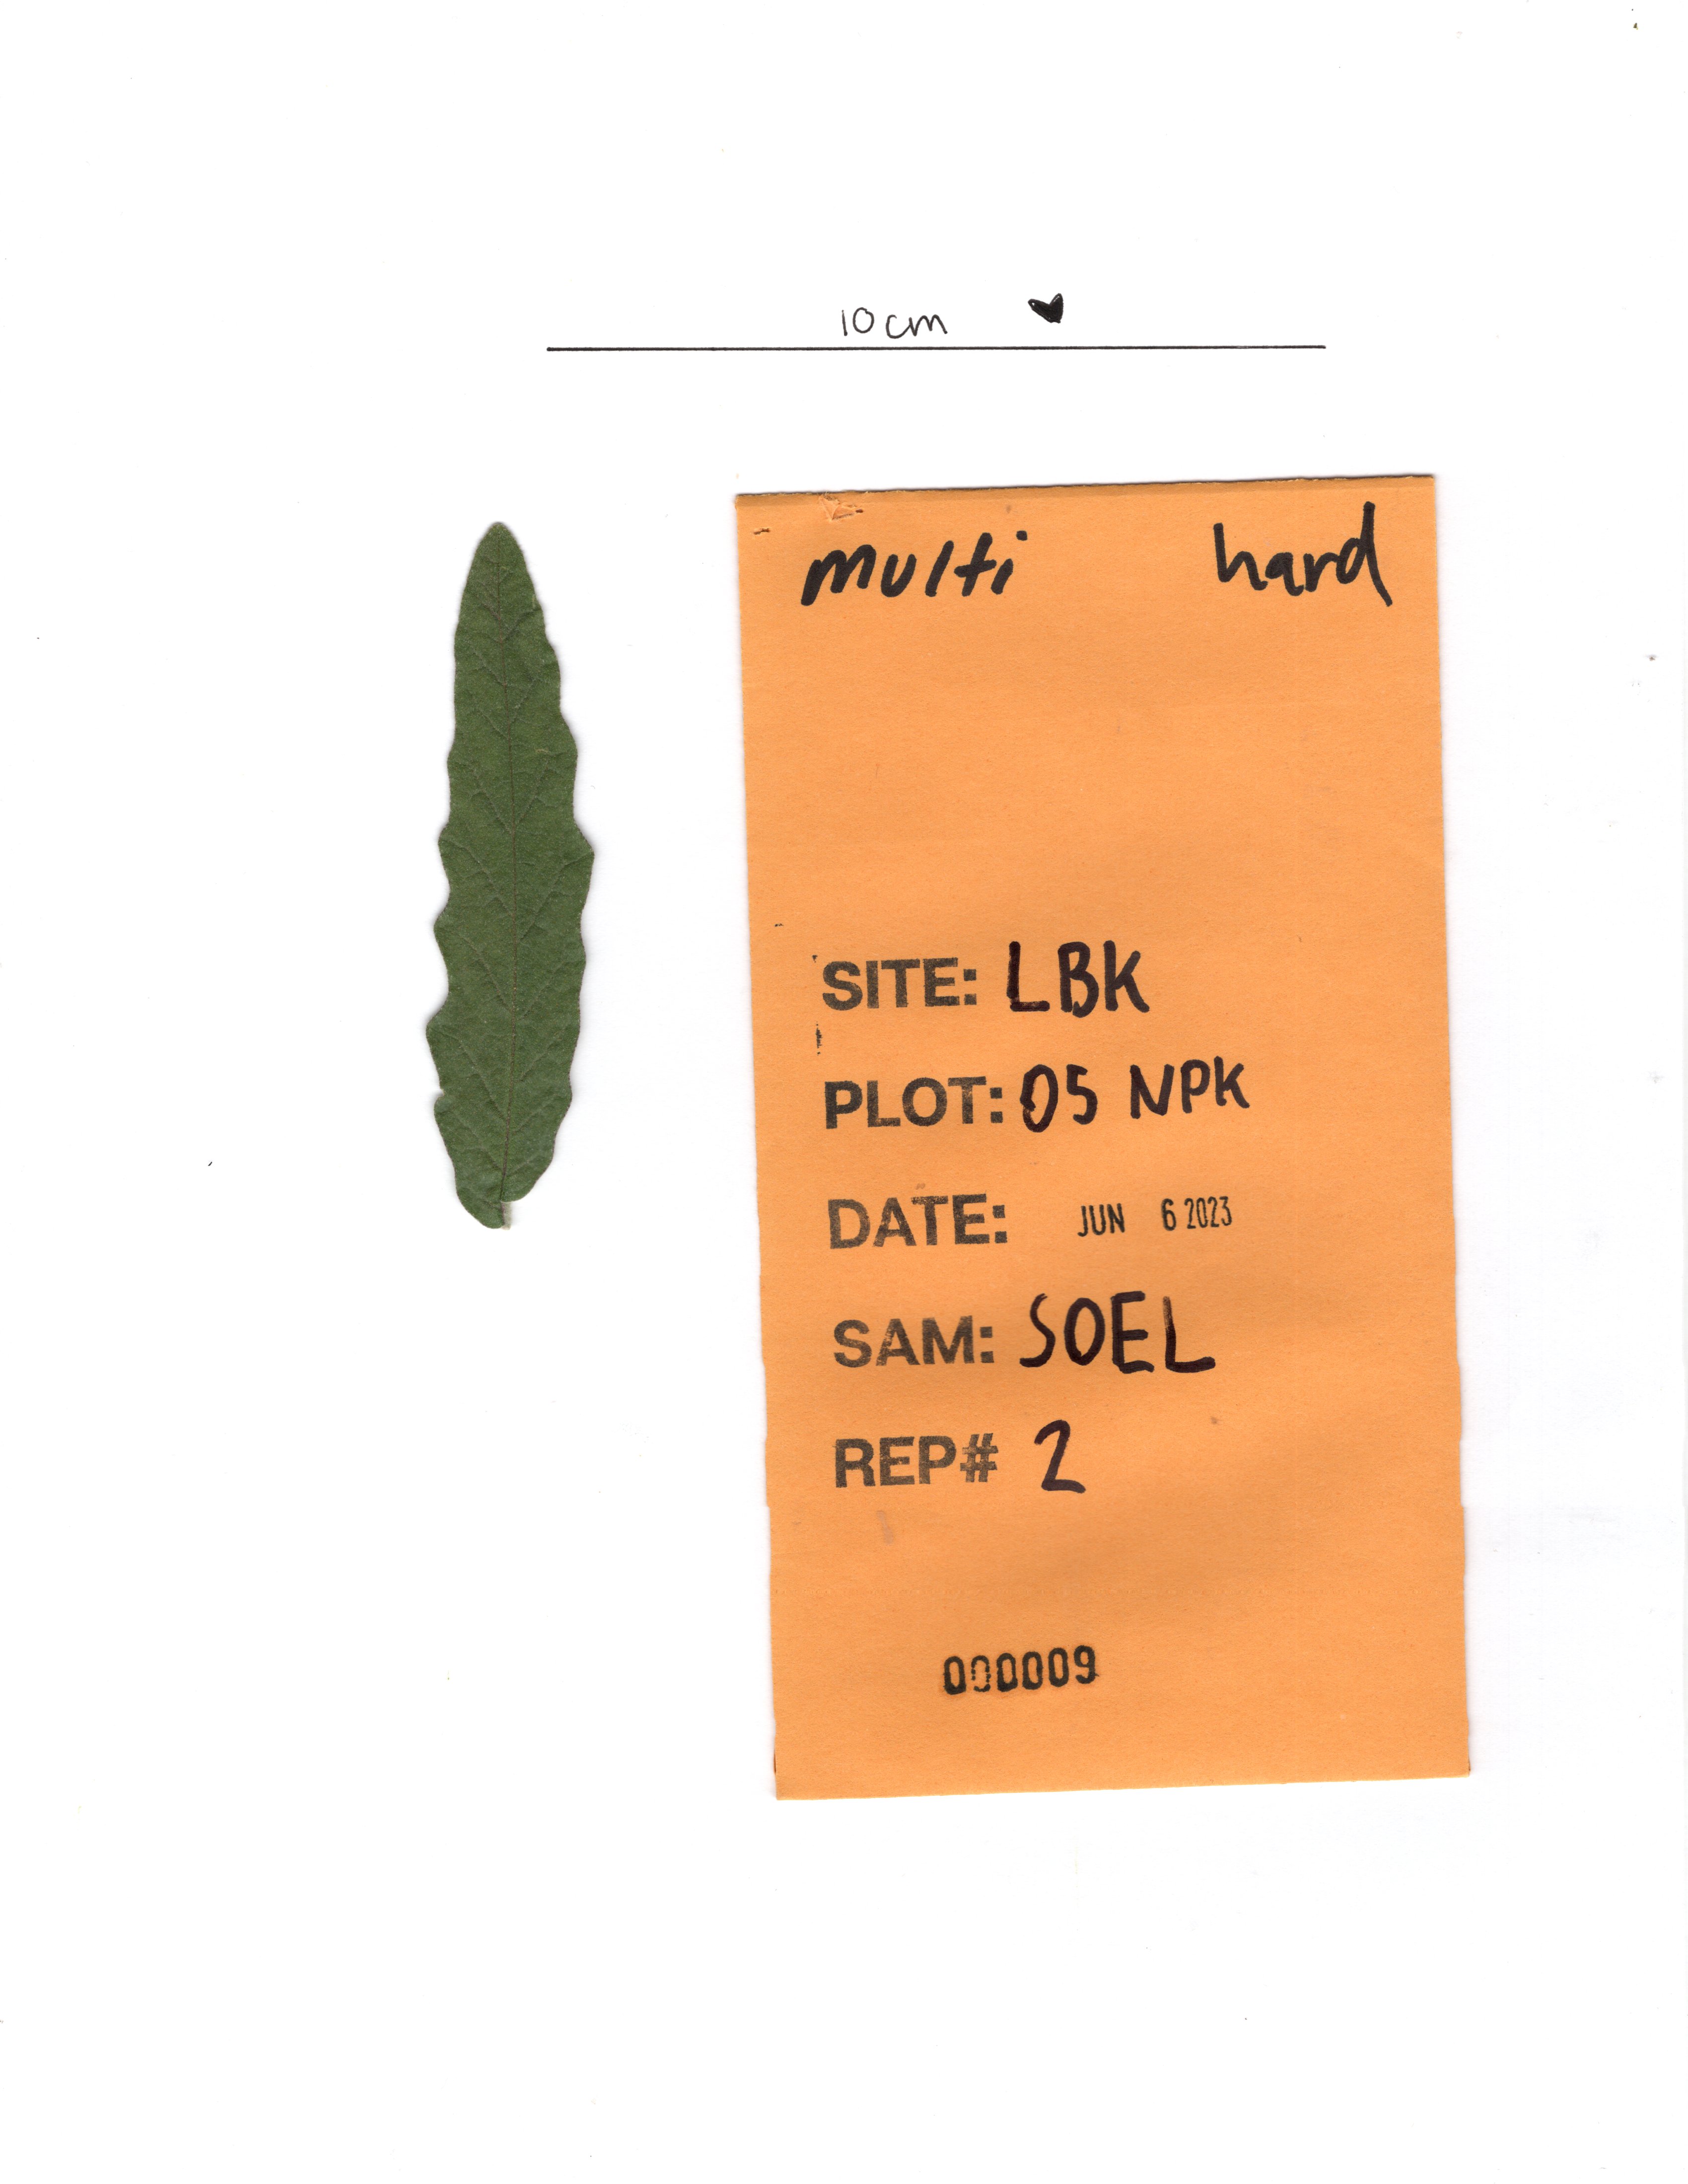 10cm
multi hard
SITE: LBK
PLOT: 05 NPK
DATE: JUN 6 2023
SAM: SOEL
REP# 2
000009